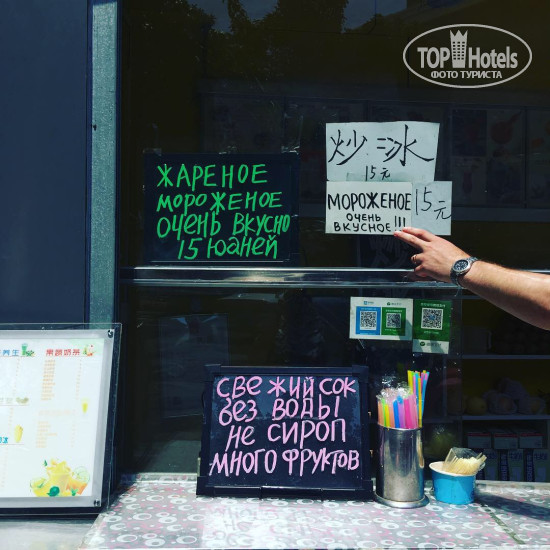 TOP Hotels
ФОТО ТУРИСТА
ЖАРЕНОЕ
МОРОЖЕНОЕ
ОЧЕНЬ ВКУСНО
15 ЮАНЕЙ
炒冰
15元
МОРОЖЕНОЕ
ОЧЕНЬ
ВКУСНОЕ!!!
15元
СВЕЖИЙ СОК
БЕЗ ВОДЫ
НЕ СИРОП
МНОГО ФРУКТОВ
养生
果蔬奶茶